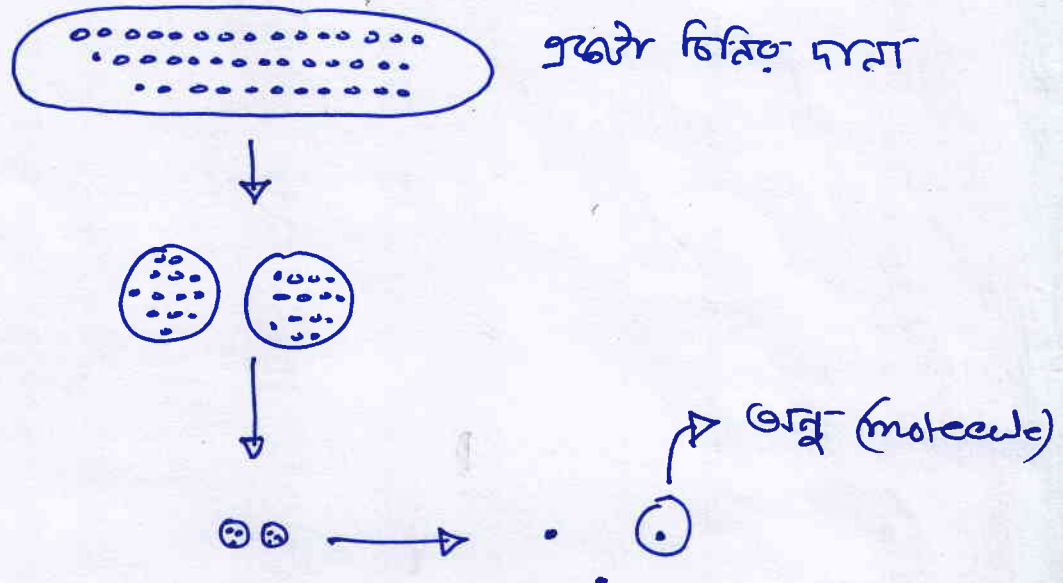 একটা চিনির দানা
অনু (molecule)